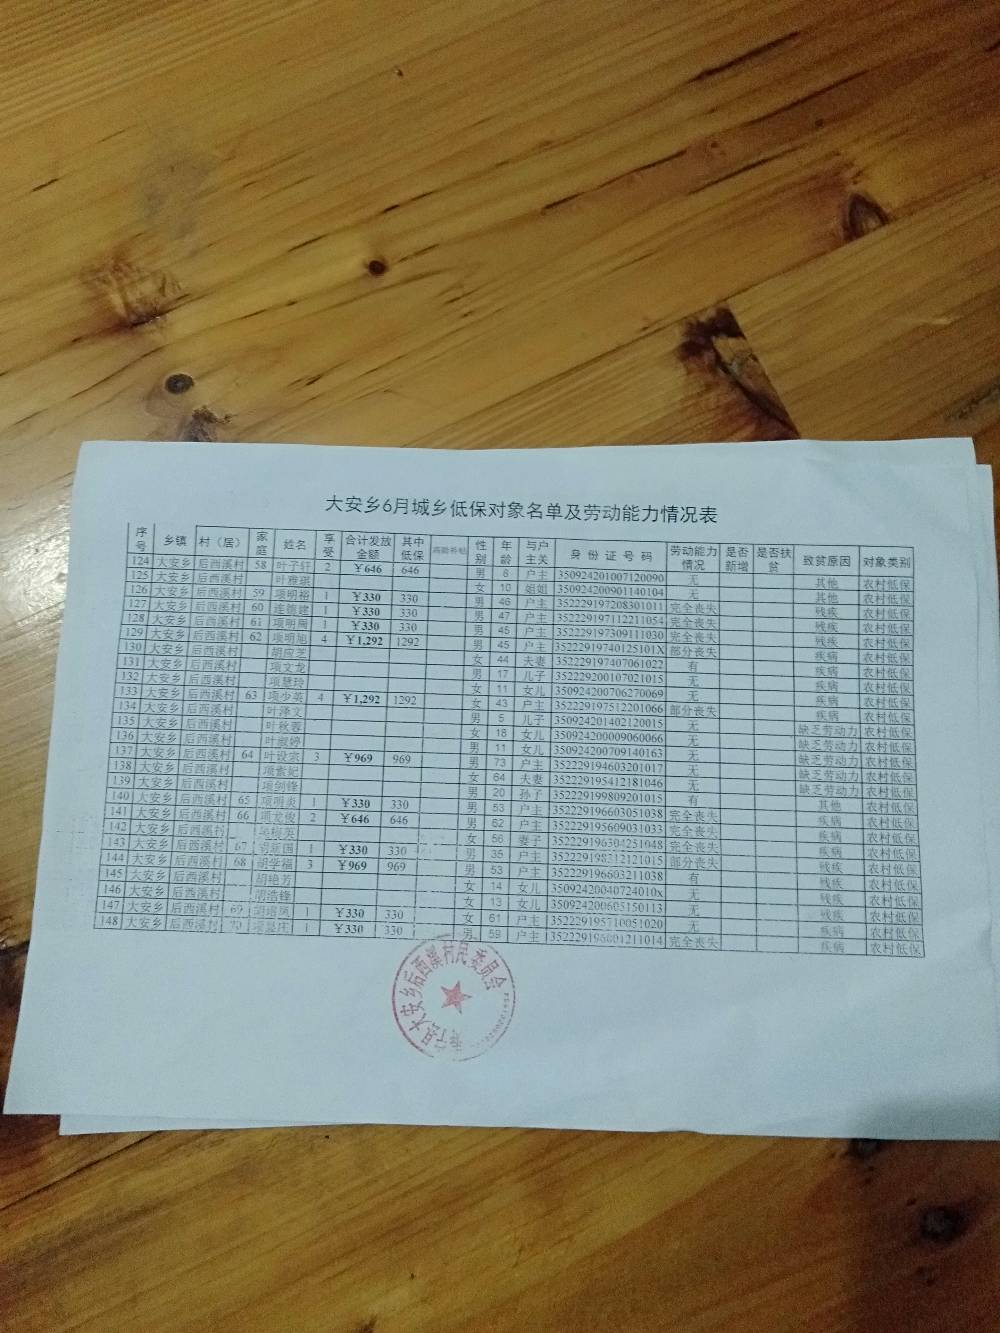 大安乡6月城乡低保对象名单及劳动能力情况表
序号 乡镇 村（居） 家庭 姓名 享受 合计发放金额 其中低保 高龄补贴 性别 年龄 与户主关 身份证号码 劳动能力情况 是否新增 是否扶贫 致贫原因 对象类别
124 大安乡 后西溪村 58 叶子轩 2 ￥646 646 男 8 户主 350924201007120090 无 其他 农村低保
125 大安乡 后西溪村 叶雅琪 女 10 姐姐 350924200901140104 无 其他 农村低保
126 大安乡 后西溪村 59 项明裕 1 ￥330 330 男 46 户主 352229197208301011 完全丧失 残疾 农村低保
127 大安乡 后西溪村 60 连德建 1 ￥330 330 男 47 户主 352229197112211054 完全丧失 残疾 农村低保
128 大安乡 后西溪村 61 项明周 1 ￥330 330 男 45 户主 352229197309111030 完全丧失 疾病 农村低保
129 大安乡 后西溪村 62 项明旭 4 ￥1,292 1292 男 45 户主 35222919740125101X 部分丧失 疾病 农村低保
130 大安乡 后西溪村 胡应芝 女 44 夫妻 352229197407061022 有 疾病 农村低保
131 大安乡 后西溪村 项文龙 男 17 儿子 352229200107021015 无 疾病 农村低保
132 大安乡 后西溪村 项慧玲 女 11 女儿 350924200706270069 无 疾病 农村低保
133 大安乡 后西溪村 63 项少英 4 ￥1,292 1292 女 43 户主 352229197512201066 部分丧失 缺乏劳动力 农村低保
134 大安乡 后西溪村 叶泽文 男 5 儿子 350924201402120015 无 缺乏劳动力 农村低保
135 大安乡 后西溪村 叶秋蓉 女 18 女儿 350924200009060066 无 缺乏劳动力 农村低保
136 大安乡 后西溪村 叶淑婷 11 女儿 350924200709140163 无 缺乏劳动力 农村低保
137 大安乡 后西溪村 64 叶设宗 3 ￥969 969 男 73 户主 352229194603201017 无 农村低保
138 大安乡 后西溪村 女 64 夫妻 352229195412181046 无 农村低保
139 大安乡 后西溪村 项剑锋 男 20 孙子 352229199809201015 有 农村低保
140 大安乡 后西溪村 65 项明炎 1 ￥330 330 男 53 户主 352229196603051038 完全丧失 农村低保
141 大安乡 后西溪村 66 项龙俊 2 ￥646 646 男 62 户主 352229195609031033 完全丧失 农村低保
142 大安乡 后西溪村 女 56 妻子 完全丧失 农村低保
143 大安乡 后西溪村 67 1 ￥330 330 男 35 户主 部分丧失 残疾 农村低保
144 大安乡 后西溪村 68 胡学福 3 ￥969 969 男 53 户主 352229196603211038 有 残疾 农村低保
145 大安乡 后西溪村 胡艳芳 女 14 女儿 35092420040724010x 无 残疾 农村低保
146 大安乡 后西溪村 胡浩锋 女 13 女儿 350924200605150113 无 残疾 农村低保
147 大安乡 后西溪村 69 1 ￥330 330 女 61 户主 352229195710051020 无 疾病 农村低保
148 大安乡 后西溪村 70 1 ￥330 330 男 59 户主 完全丧失 疾病 农村低保
寿宁县大安乡后西溪村民委员会